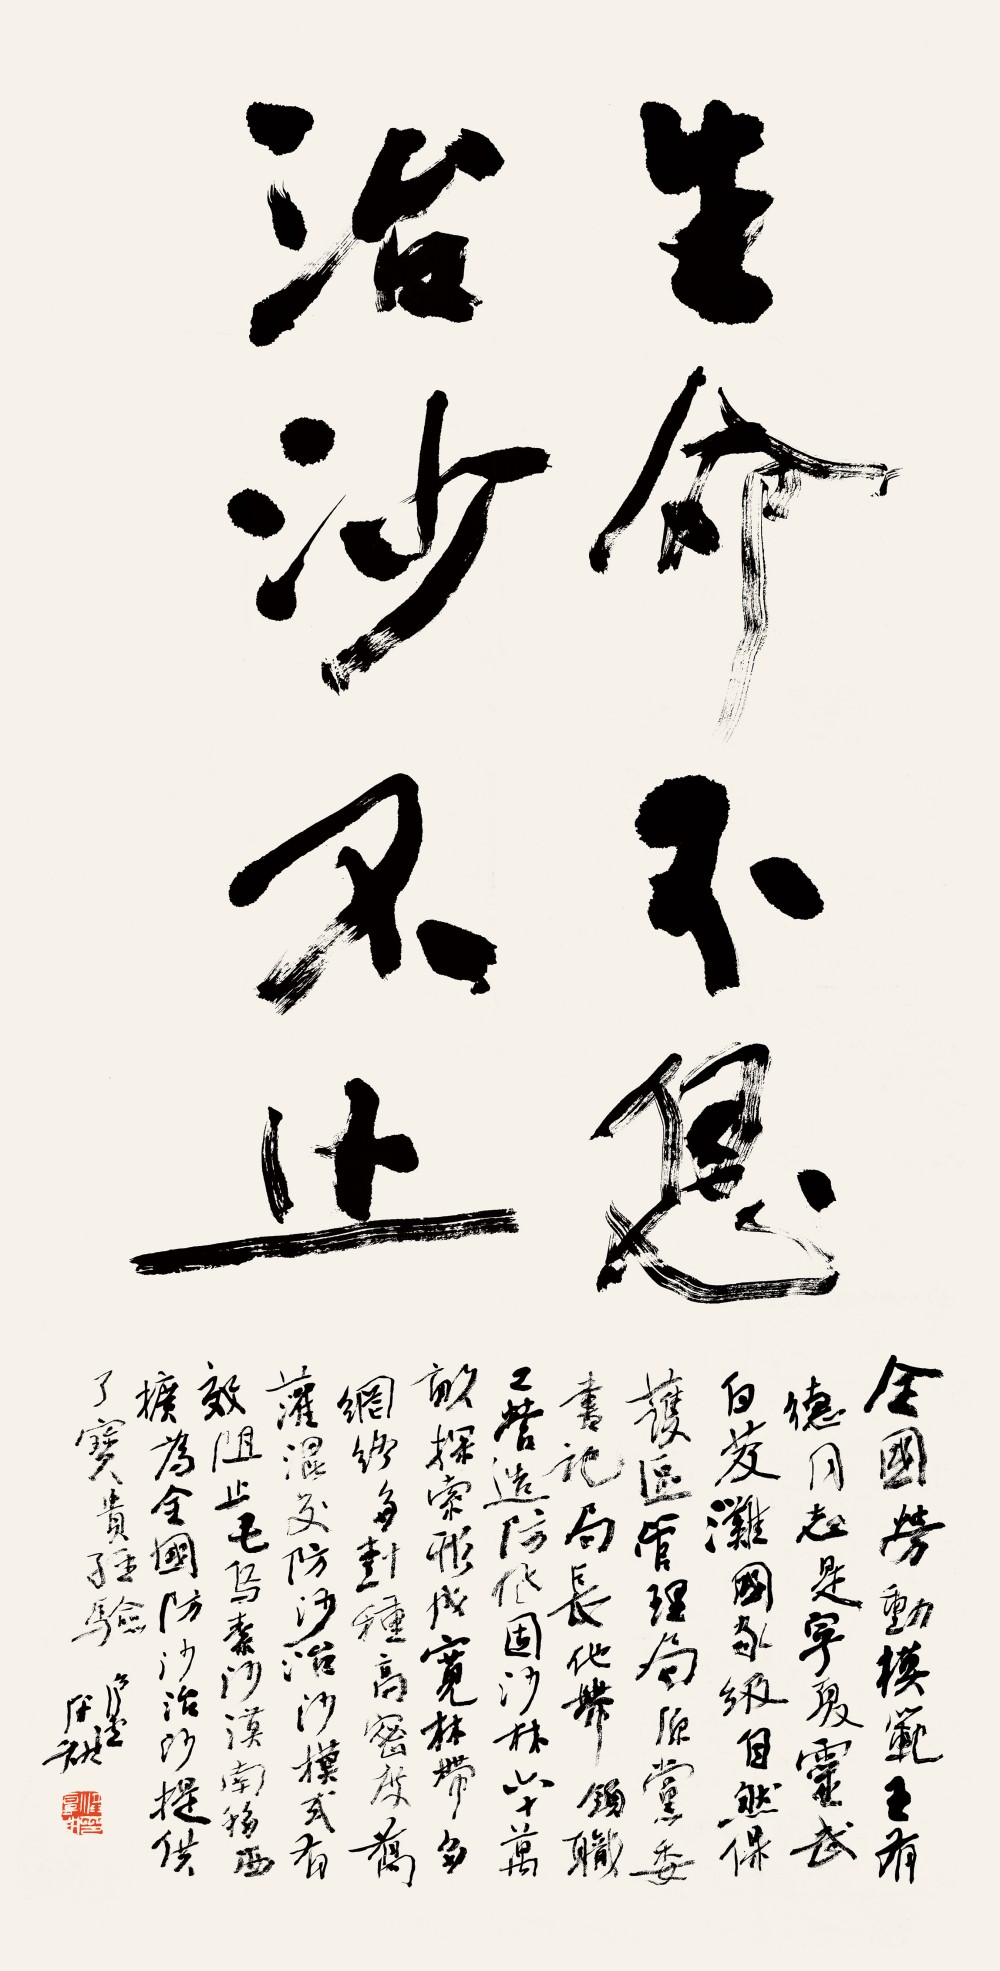 生命不息
治沙不止
全國勞動模範王有
德同志是宁夏靈武
白芨灘國家级自然保
護區管理局原黨委
書記局長他帶領職
工營造防风固沙林六十萬
畝探索形成寬林帶多
網络多樹種高密度喬
灌混交防沙治沙模式有
效阻止毛乌素沙漠南移西
擴為全國防沙治沙提供
了寶貴经驗